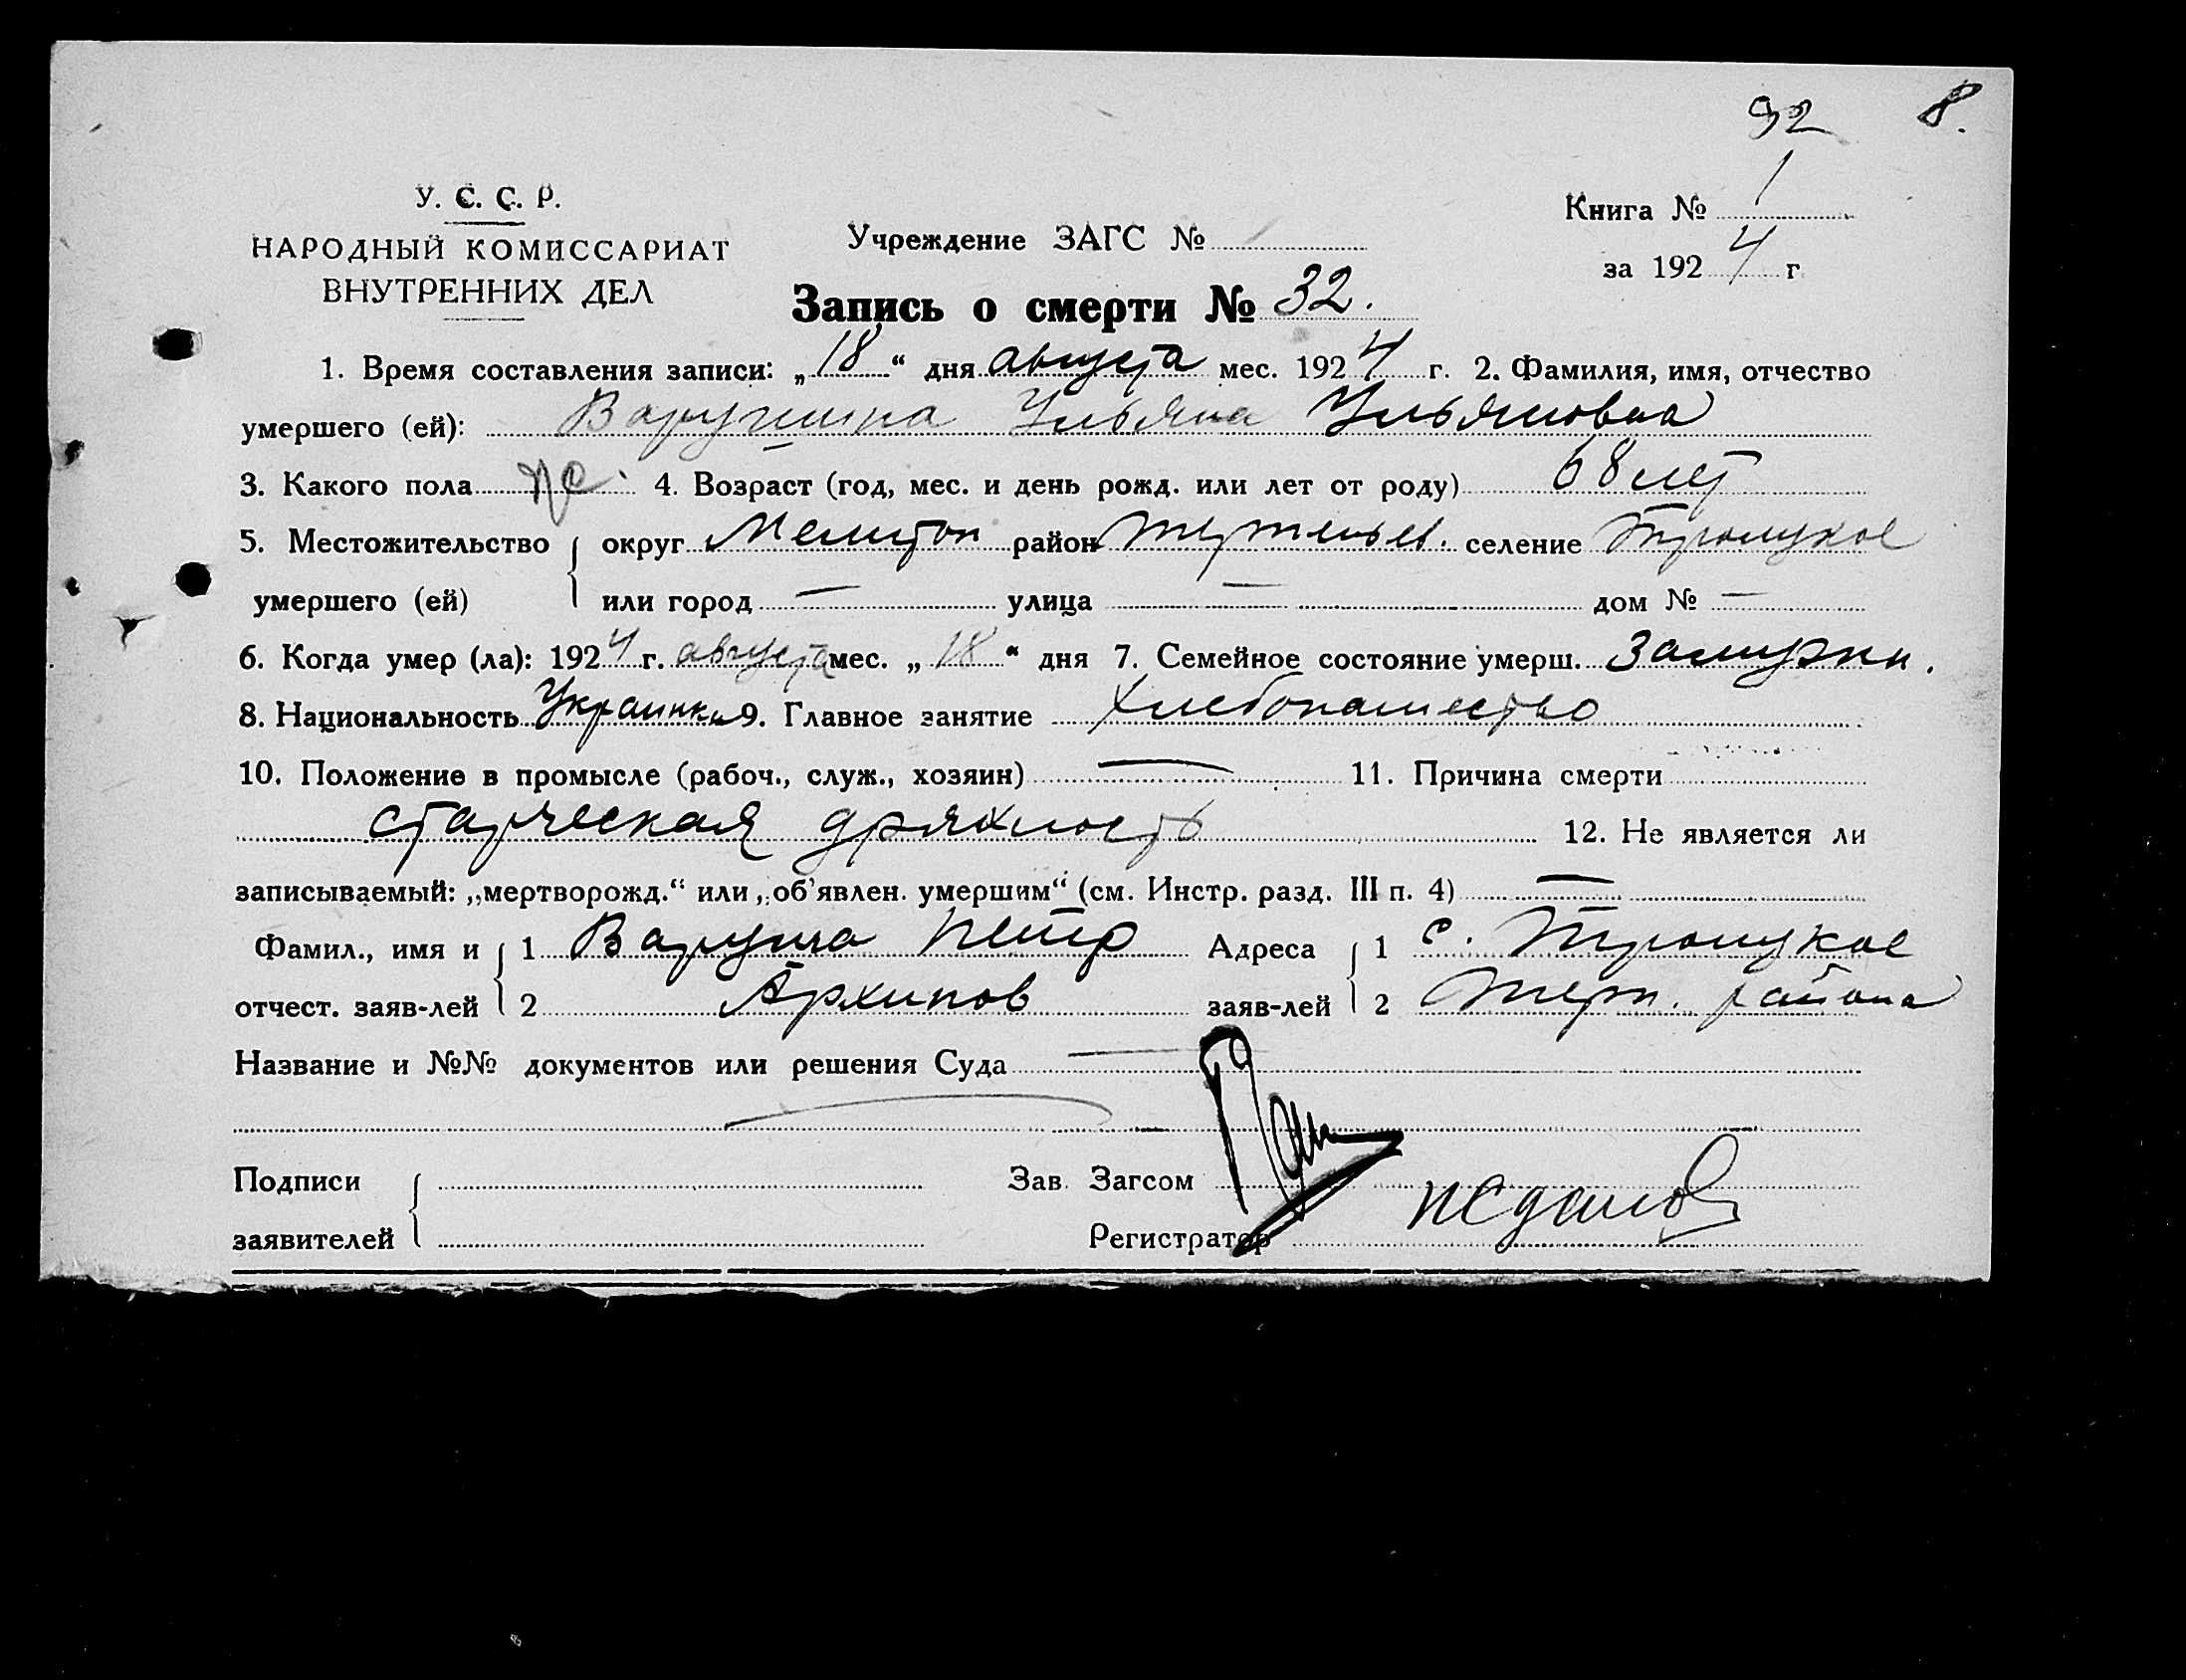 92 8.
У. С. С. Р.
НАРОДНЫЙ КОМИССАРИАТ
ВНУТРЕННИХ ДЕЛ
Учреждение ЗАГС №
Книга № 1
за 1924 г
Запись о смерти № 32.
1. Время составления записи: „18“ дня августа мес. 1924 г. 2. Фамилия, имя, отчество
умершего (ей): Ульяна Ульяновна
3. Какого пола ж. 4. Возраст (год, мес. и день рожд. или лет от роду) 68 лет
5. Местожительство округ Мелитоп район селение Троицкое
умершего (ей) или город — улица — дом № —
6. Когда умер (ла): 1924 г. августа мес. „18“ дня 7. Семейное состояние умерш. Замужн.
8. Национальность Украинка 9. Главное занятие Хлебопашество
10. Положение в промысле (рабоч., служ., хозяин) — 11. Причина смерти
старческая дряхлость 12. Не является ли
записываемый: „мертворожд.“ или „об'явлен. умершим“ (см. Инстр. разд. III п. 4) —
Фамил., имя и 1 Петр Адреса 1 с. Троицкое
отчест. заяв-лей 2 Архипов заяв-лей 2 района
Название и №№ документов или решения Суда —
Подписи Зав. Загсом
заявителей Регистратор